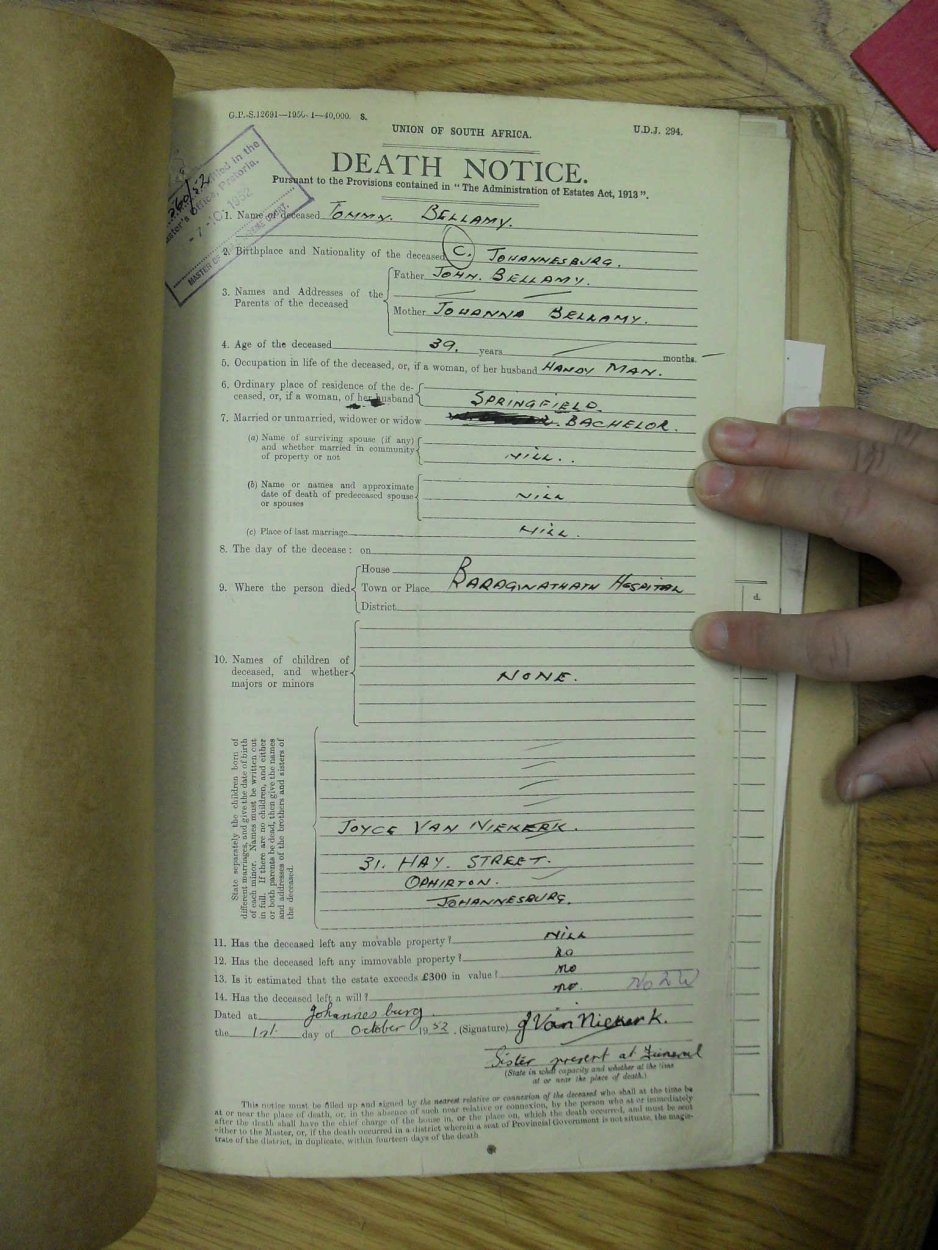 G.P.-S.12691—195 -1—40,000. S.
UNION OF SOUTH AFRICA.
U.D.J. 294.
DEATH NOTICE.
Pursuant to the Provisions contained in "The Administration of Estates Act, 1913".
in the
Master's Office, Pretoria.
-7.10.1952
MASTER OF
1. Name of deceased TOMMY. BELLAMY.
2. Birthplace and Nationality of the deceased C. JOHANNESBURG.
3. Names and Addresses of the Parents of the deceased
Father JOHN. BELLAMY.
Mother JOHANNA BELLAMY.
4. Age of the deceased 39. years months.
5. Occupation in life of the deceased, or, if a woman, of her husband HANDY MAN.
6. Ordinary place of residence of the de-
ceased, or, if a woman, of her husband SPRINGFIELD.
7. Married or unmarried, widower or widow BACHELOR.
(a) Name of surviving spouse (if any)
and whether married in community
of property or not
NILL.
(b) Name or names and approximate
date of death of predeceased spouse
or spouses
NILL
(c) Place of last marriage NILL.
8. The day of the decease: on
9. Where the person died
House
Town or Place BARAGWATHATH HOSPITAL
District
10. Names of children of
deceased, and whether
majors or minors
NONE.
State separately the children born of
different marriages, and give the date of birth
of each minor. Names must be written out
in full. If there are no children, and either
or both parents be dead, then give the names
and addresses of the brothers and sisters of
the deceased.
JOYCE VAN NIEKERK.
31. HAY. STREET.
OPHIRTON.
JOHANNESBURG.
11. Has the deceased left any movable property? NILL
12. Has the deceased left any immovable property? no
13. Is it estimated that the estate exceeds £300 in value? no
14. Has the deceased left a will? no.
Dated at Johannesburg.
the 1st day of October 1952. (Signature) J Van Niekerk.
Sister present at Funeral
(State in what capacity and whether at the time
at or near the place of death.)
This notice must be filled up and signed by the nearest relative or connexion of the deceased who shall at the time be
at or near the place of death, or, in the absence of such near relative or connexion, by the person who at or immediately
after the death shall have the chief charge of the house in, or the place on, which the death occurred, and must be sent
either to the Master, or, if the death occurred in a district wherein a seat of Provincial Government is not situate, the magis-
trate of the district, in duplicate, within fourteen days of the death
d.